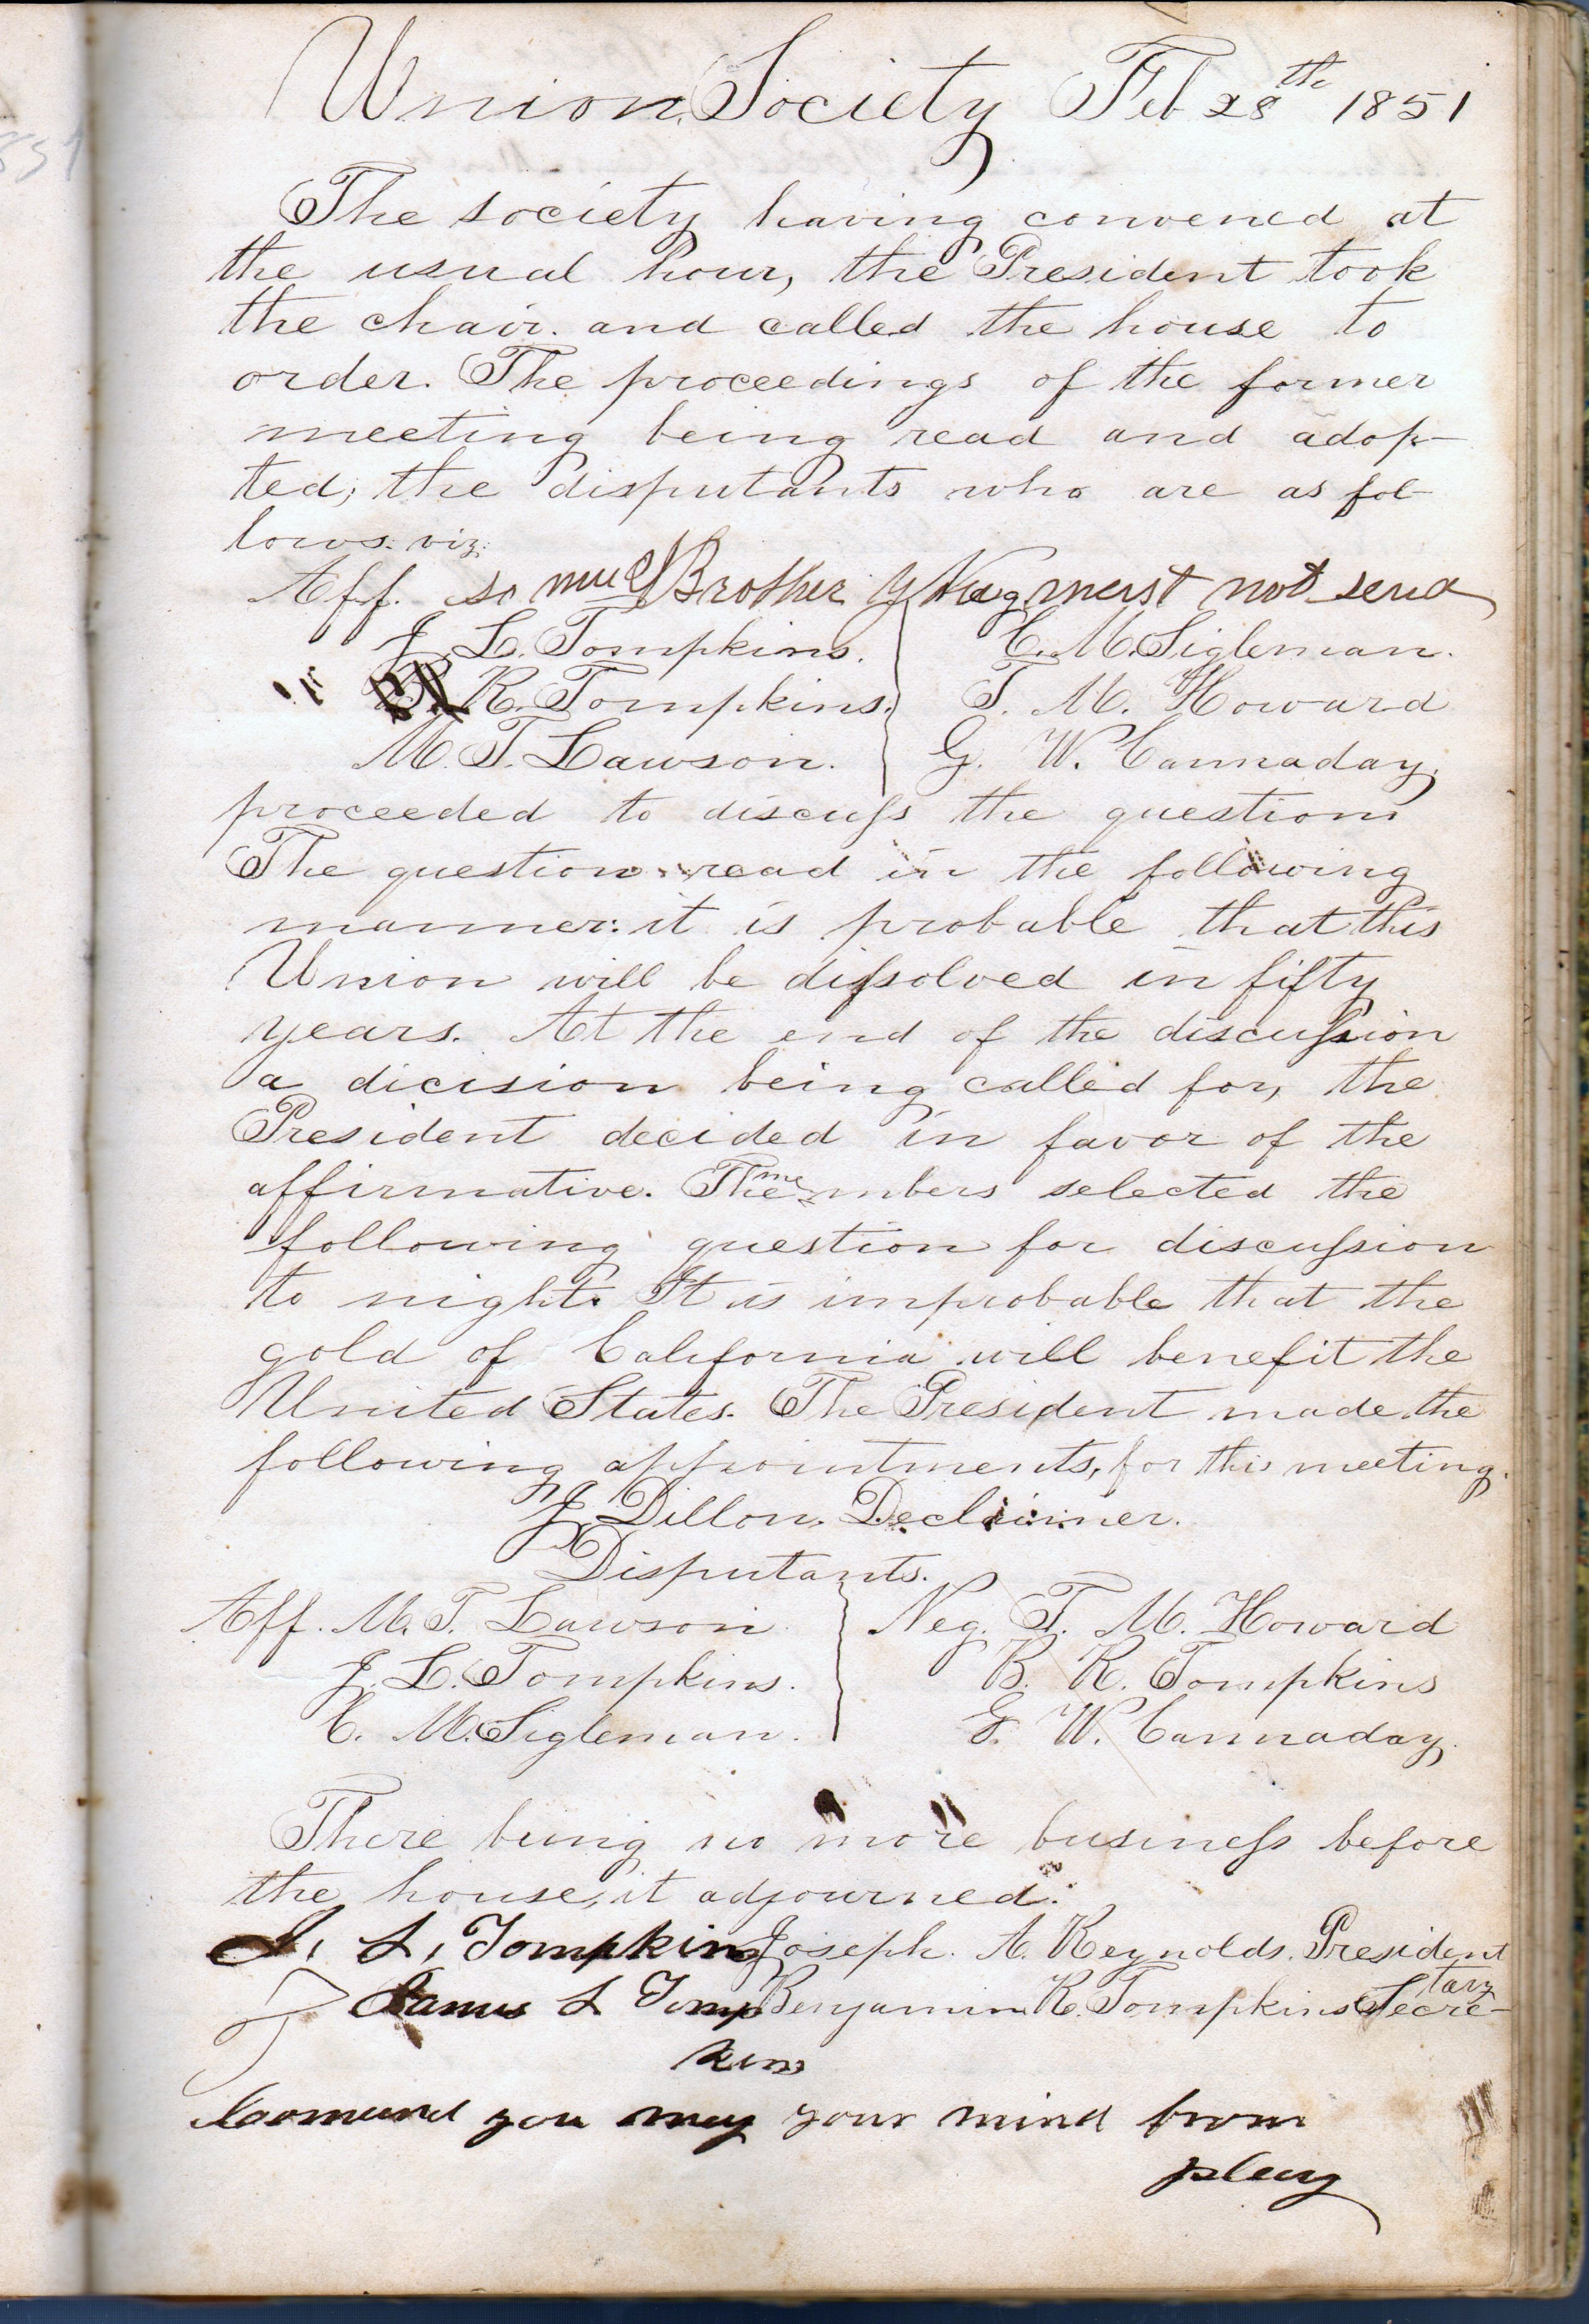 Union Society Feb 28th 1851
The society having convened at
the usual hour, the President took
the chair. and called the house to
order. The proceedings of the former
meeting being read and adop-
ted; the disputants who are as fol-
lows: viz:
Aff. so Brother Neg must not send
J. L. Tompkins. C. M. Sigleman.
" K. Tompkins. T. M. Howard
M. T. Lawson. G. W. Cannaday.
proceeded to discuss the question
The question read in the following
manner: it is probable that this
Union will be dissolved in fifty
years. At the end of the discussion
a dicision being called for, the
President decided in favor of the
affirmative. The members selected the
following question for discussion
to night. It is improbable that the
gold of California will benefit the
United States. The President made the
following appointments, for this meeting.
J. Dillon. Declaimer.
Disputants.
Aff. M. T. Lawson. Neg. T. M. Howard
J. L. Tompkins. B. K. Tompkins
C. M. Sigleman. G. W. Cannaday.
There being no more business before
the house, it adjourned.
J. L, Tompkins Joseph. A. Reynolds. President
James L Tomp Benjamin K. Tompkins Secre-
tary
kins
Comund you may your mind from
play